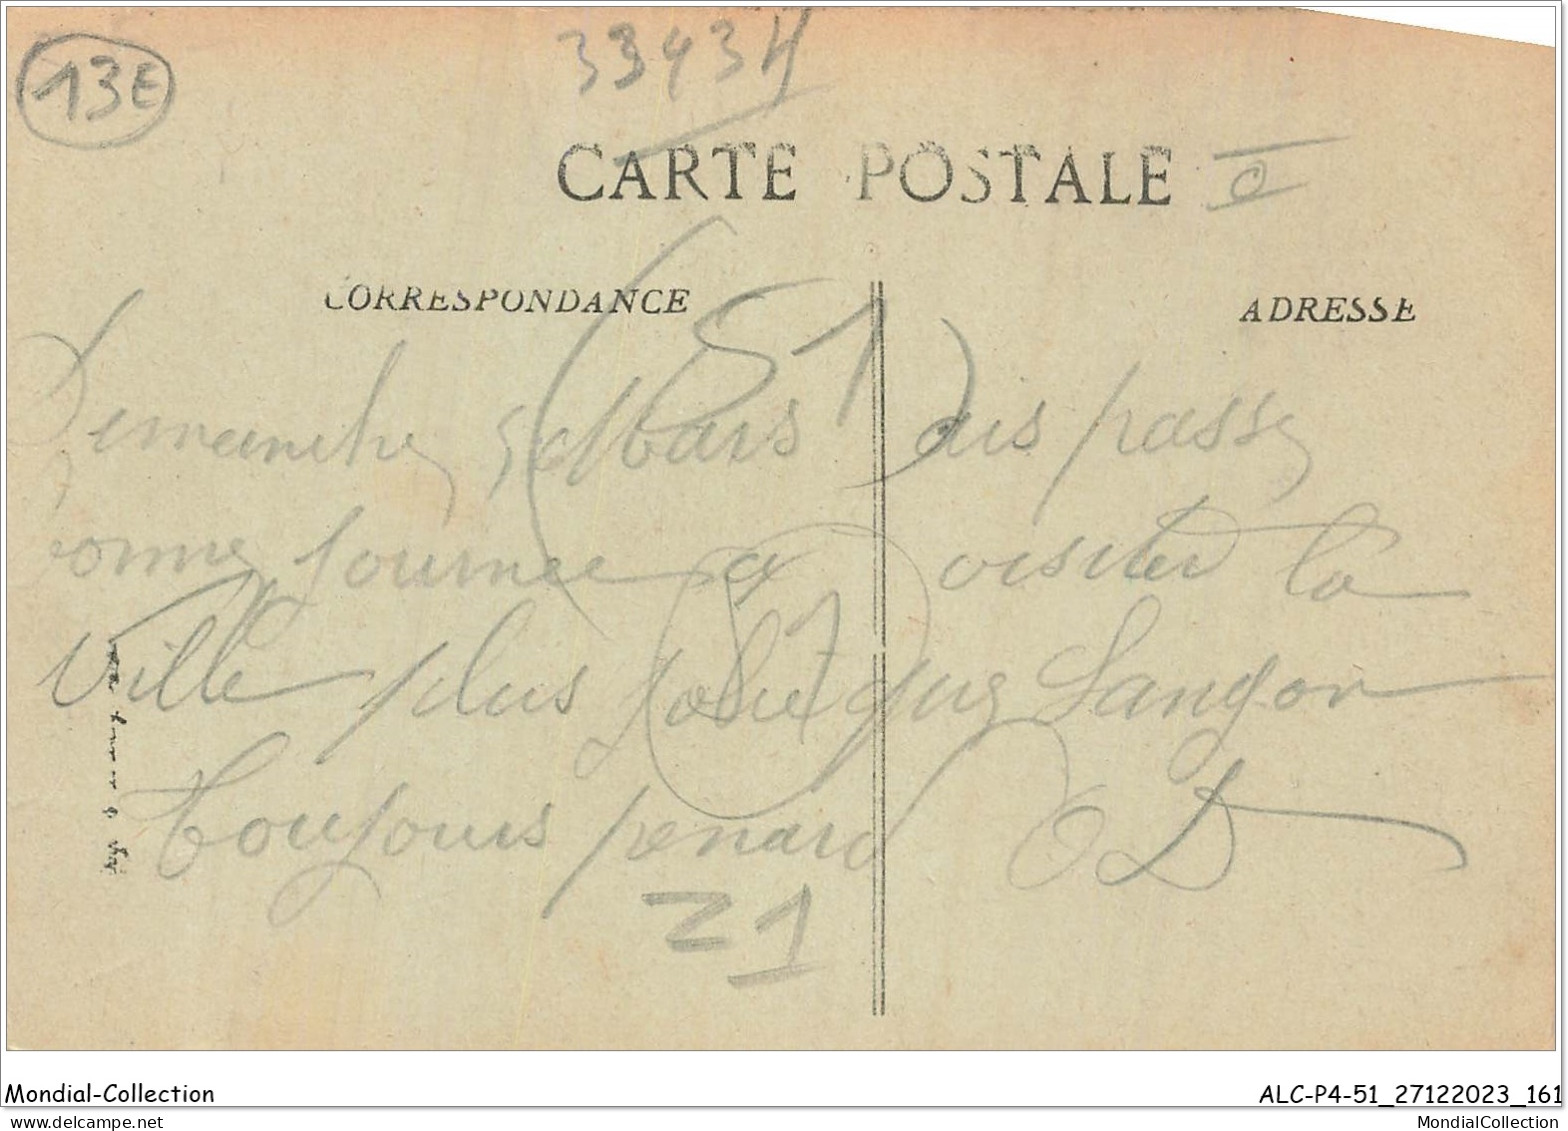 13E
3343H
CARTE POSTALE
CORRESPONDANCE
ADRESSE
(51)
Dimanche 5 Mars ais passé
bonne journee a visiter la
Ville plus jolie que Langon
Toujours penard
51
Z1
Mondial-Collection
ALC-P4-51_27122023_161
MondialCollection